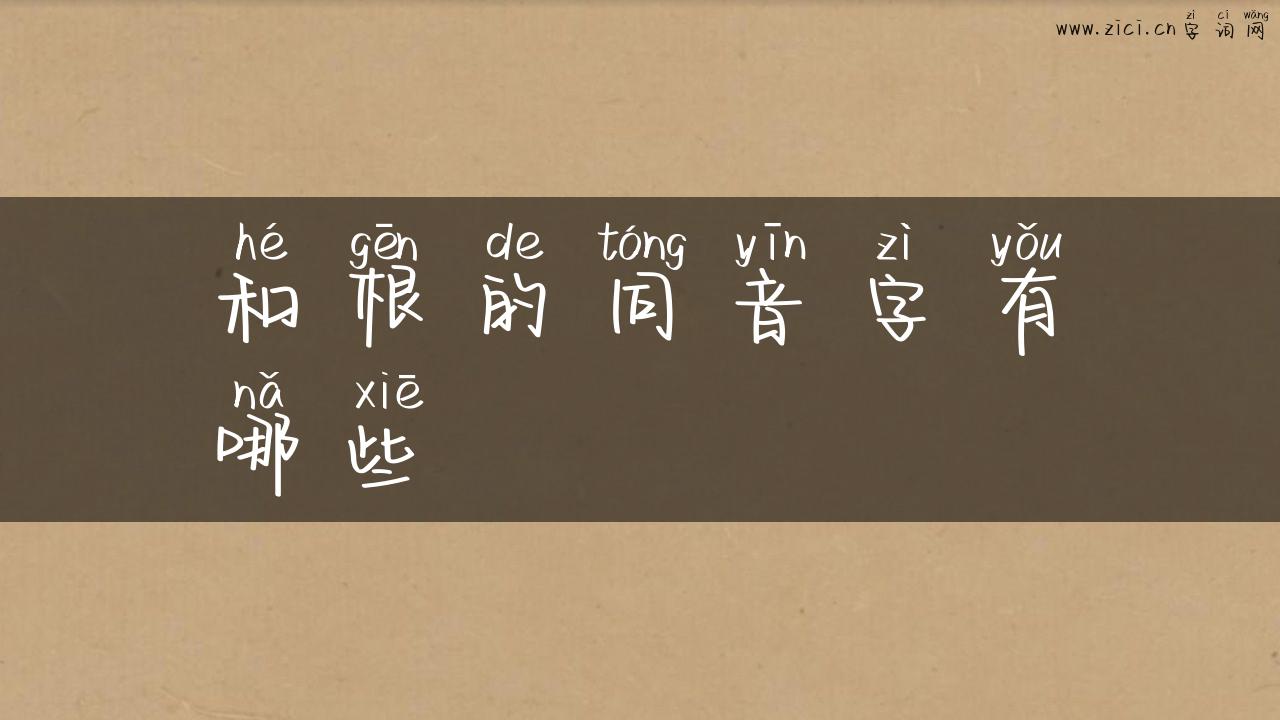 zì cí wǎng
www.zici.cn 字 词 网
hé gēn de tóng yīn zì yǒu
和 根 的 同 音 字 有
nǎ xiē
哪 些